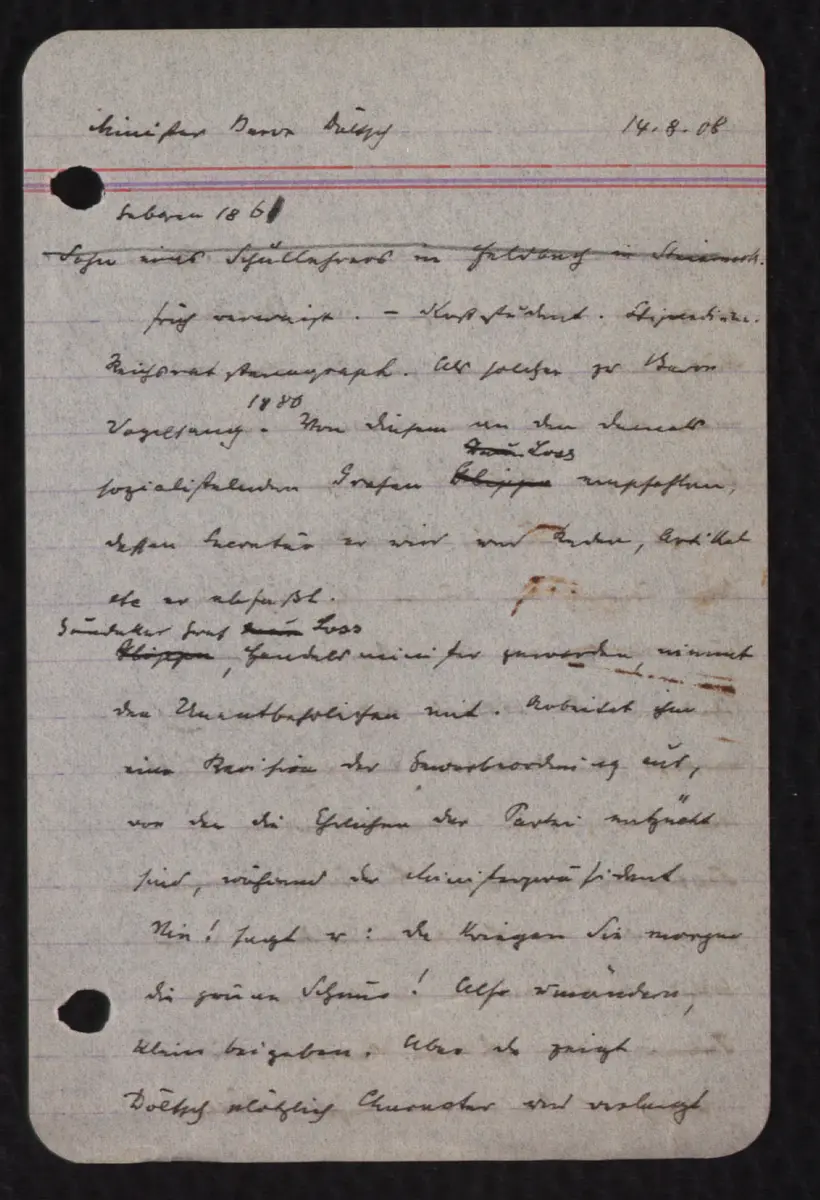 Minister Baron Döltsch 14.8.08
Geboren 1861
Sohn eines Schullehrers in Feldbach in Steiermark.
früh verwaist. - Koststudent. Stipendium.
Reichsrat stenograph. Als solcher zu Baron
1880
Vogelsang. Von diesem an den damals
Loss
sozialistelnden Grafen Klippe empfohlen,
dessen Secretär er wird und Reden, Artikel
etc er abfaßt.
Graf Loss
Klippe, Handelsminister geworden, nimmt
den Unentbehrlichen mit. Arbeitet ihm
eine Revision der Gewerbeordnung aus,
von der die Ehrlichen der Partei entzückt
sind, während der Ministerpräsident
Nein! sagt er: da kriegen Sie morgen
die grünen Schnüs! Also umändern,
klein beigeben. Aber da zeigt
Döltsch plötzlich Charakter und verlangt